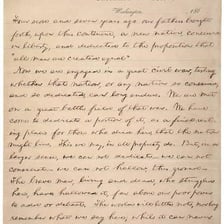 Washington, 186
Four score and seven years ago our fathers brought
forth, upon this continent, a new nation, conceived
in liberty, and dedicated to the proposition that
"all men are created equal"
Now we are engaged in a great civil war, testing
whether that nation, or any nation so conceived,
and so dedicated, can long endure. We are met
on a great battle field of that war. We have
come to dedicate a portion of it, as a final rest-
ing place for those who died here, that the nation
might live. This we may, in all propriety do. But, in a
larger sense, we can not dedicate — we can not
consecrate — we can not hallow, this ground —
The brave men, living and dead, who struggled
here, have hallowed it, far above our poor power
to add or detract. The world will little note, nor long
remember what we say here; while it can never